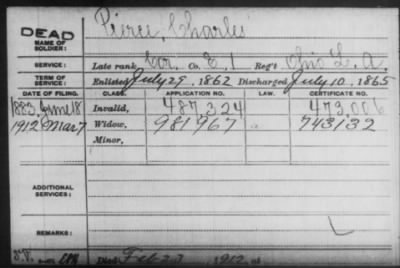 DEAD
NAME OF
SOLDIER:
Pierce, Charles
SERVICE:
Late rank, Cor. Co. E. 1 Reg't Ohio L. A.
TERM OF
SERVICE:
Enlisted July 29, 1862 Discharged July 10, 1865
DATE OF FILING. CLASS. APPLICATION NO. LAW. CERTIFICATE NO.
1883, June 18 Invalid, 487,324 473,006
1912 Mar 7 Widow, 981967 743132
Minor,
ADDITIONAL
SERVICES:
REMARKS:
Died Feb 27 1912, at